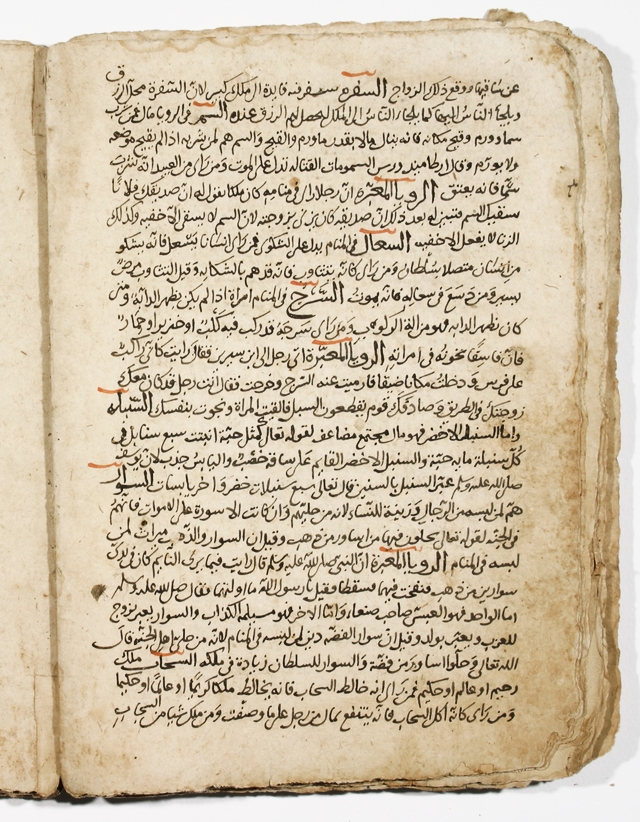 عن ساقيها ووقع ذلك الزواج السفرة سفرة فايدة الى ملك كبير لان السفرة محل الرزق
ويلجأ الناس اليها كما يلجأ الناس الى الملك ليحصل لهم الرزق عنده السم في الرويا مال فمن شرب
سما وورم وقيح فانه ينال مالا بقدر ما ورم والقيح والسم هم لمن شربه اذا لم يقيح موضعه
ولا يورم وقال ارطاميدورس السمومات القتاله تدل على الموت ومن راى من العبيد انه شرب
سما فانه يعتق الرويا المعبرة ان رجلا راى في منامه كان ملكا يقول له ان صديقك فلانا
سقيك السم فتبين له بعد ذلك ان صديقه كان يزني بزوجته لان السم لا يسقى الا خفيه وكذلك
الزنا لا يفعل الا خفيه السعال في المنام يدل على الشكوى فمن راى انسانا يسعل فانه يشكو
من انسان متصلا بسلطان ومن راى كانه يتثاوب فانه قد هم بالشكايه وقيل التثاوب مرض
يسير ومن دسع في سعاله فانه يموت السرج في المنام امراة اذا لم يكن بظهر الدابه ومتى
كان بظهر الدابه فهو منزلة الركوب ومن راى سرجه قد ركب فيه كلب او خنزير او حمار
فان فاسقا يخونه في امراته الرويا المعبرة اتى رجل الى ابن سيرين فقال رايت كاني راكب
على فرس ودخلت مكانا ضيقا فارميت عنه السرج وخرجت فقال انت رجل قد كان معك
زوجتك في الطريق وصادفك قوم يقطعون السبيل فالقيت المراة ونجوت بنفسك السنبله
واما السنبل الاخضر فهو مال مجتمع مضاعف لقوله تعالى كمثل حبة انبتت سبع سنابل في
كل سنبلة مايه حبة والسنبل الاخضر القايم على ساقه خصب واليابس جدب لان يوسف
صلى الله عليه وسلم عبر السنبل بالسنين قال تعالى سبع سنبلات خضر واخر يابسات السوار
هم لمن لبسه من الرجال وزينة للنساء لانه من حليتهم وان كانت الاسورة على الاموات فانهم
في الجنة لقوله تعالى يحلون فيها من اساور من ذهب وقيل ان السوار والذهب ميراث لمن
لبسه في المنام الرويا المعبرة ان النبي صلى الله عليه وسلم قال رايت فيما يرى النايم كان في يدي
سوارين من ذهب فنفخت فيهما فسقطا وقيل يا رسول الله ما اولتهما فقال صلى الله عليه وسلم
اما الواحد فهو العبسي صاحب صنعا واما الاخر فهو مسيلمة الكذاب والسوار يعبر بزوج
للعزب ويعبر بولد وقيل ان سوار الفضه دين لمن لبسه في المنام لانه من حلي اهل الجنة قال
الله تعالى وحلوا اساور من فضة والسوار للسلطان زيادة في ملكه السحاب ملك
رحيم او عالم او حكيم فمن راى انه خالط السحاب فانه يخالط ملكا كريما او عالما او حكيما
ومن راى كانه اكل السحاب فانه ينتفع بمال من رجل على ما وصفت ومن ملك شيا من السحاب